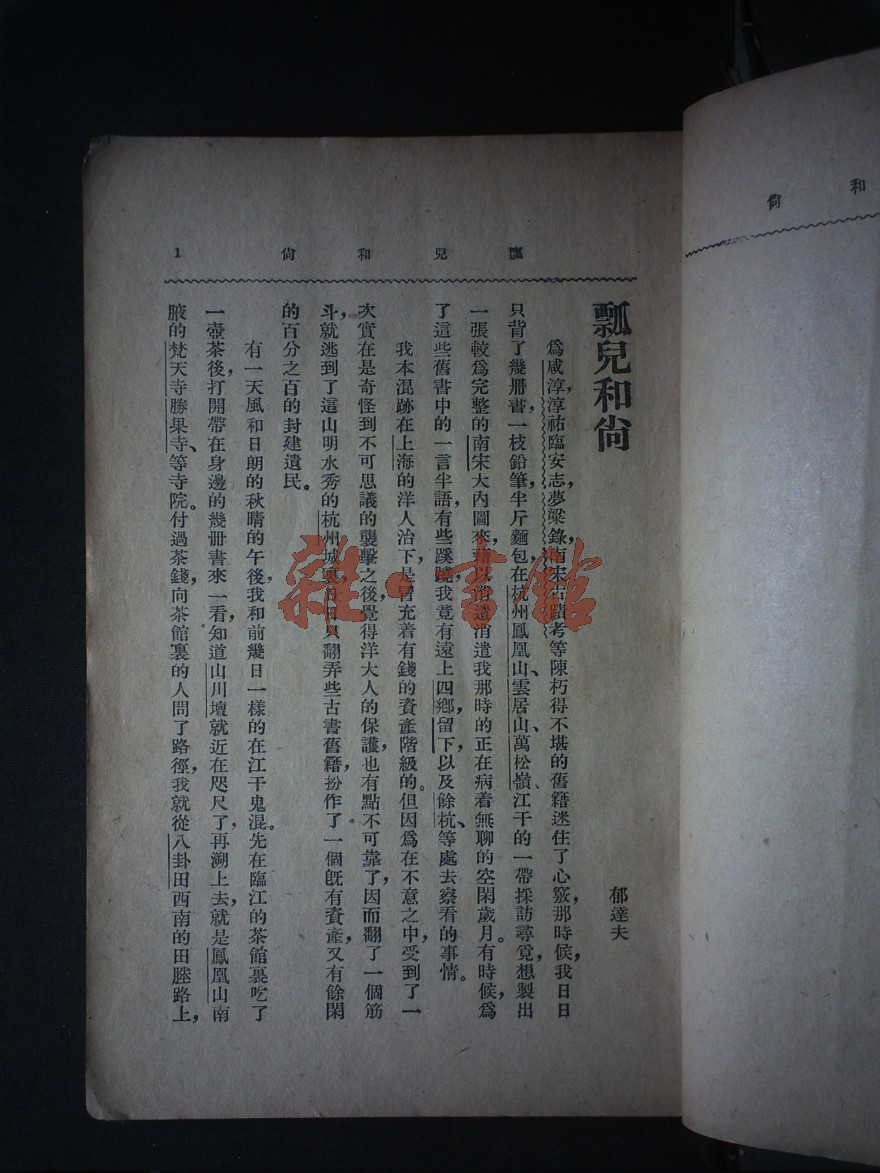 瓢兒和尚
1
瓢兒和尚
郁達夫
為咸淳，淳祐臨安志，夢粱錄，南宋古蹟考等陳朽得不堪的舊籍迷住了心竅，那時候，我日日
只背了幾册書，一枝鉛筆，半斤麵包，在杭州鳳凰山、雲居山、萬松嶺、江干的一帶採訪尋覓，想製出
一張較為完整的南宋大內圖來，藉以消遣消遣我那時的正在病着無聊的空閑歲月。有時候，為
了這些舊書中的一言半語，有些蹊蹺，我竟有遠上四鄉，留下，以及餘杭、等處去察看的事情。
我本混跡在上海的洋人治下，是冒充着有錢的資產階級的。但因為在不意之中，受到了一
次實在是奇怪到不可思議的襲擊之後，覺得洋大人的保護，也有點不可靠了，因而翻了一個筋
斗，就逃到了這山明水秀的杭州城裏，日日只翻弄些古書舊籍，扮作了一個既有資產，又有餘閑
的百分之百的封建遺民。
有一天風和日朗的秋晴的午後，我和前幾日一樣的在江干鬼混。先在臨江的茶館裏吃了
一壺茶後，打開帶在身邊的幾册書來一看，知道山川壇就近在咫尺了，再溯上去，就是鳳凰山南
腋的梵天寺、勝果寺、等寺院。付過茶錢，向茶館裏的人問了路徑，我就從八卦田西南的田塍路上，
和尚
雜·書館